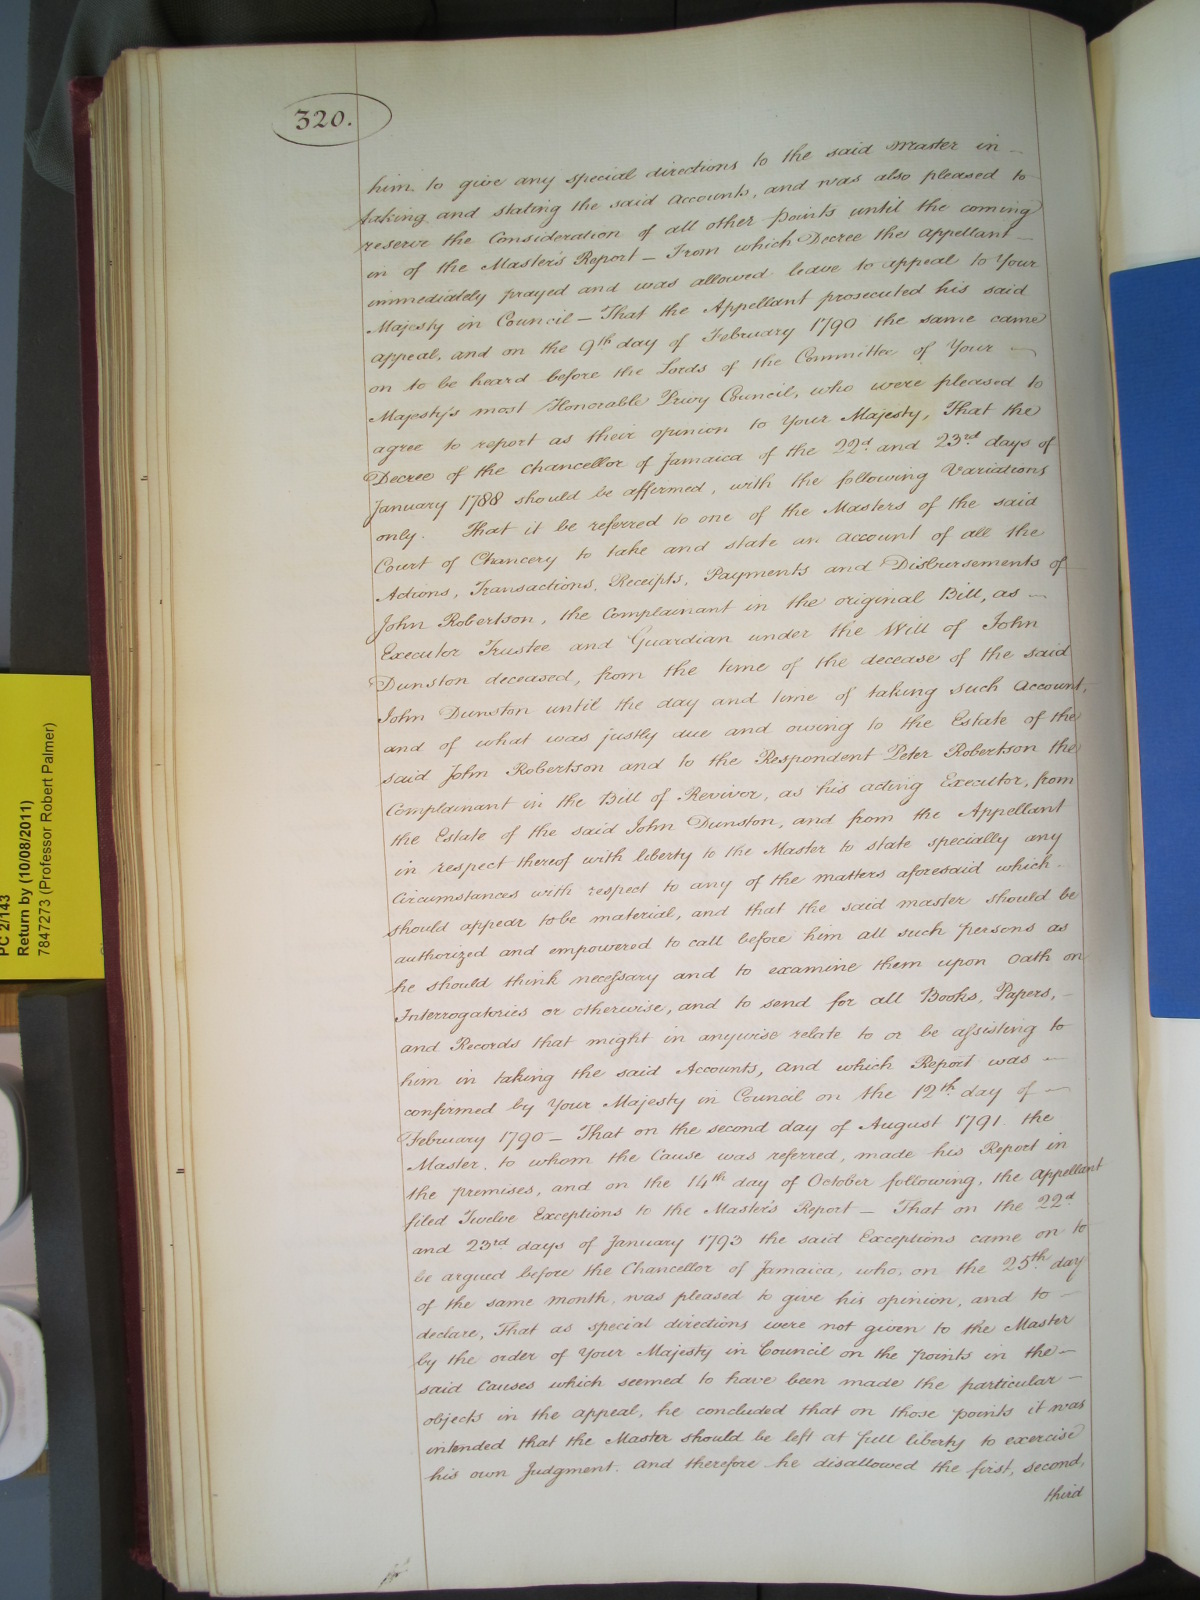 320.
him to give any special directions to the said Master in —
taking and stating the said Accounts, and was also pleased to
reserve the Consideration of all other points until the coming
in of the Master's Report — From which Decree the appellant —
immediately prayed and was allowed leave to appeal to Your
Majesty in Council — That the Appellant prosecuted his said
appeal, and on the 9th day of February 1790 the same came
on to be heard before the Lords of the Committee of Your —
Majesty's most Honorable Privy Council, who were pleased to
agree to report as their opinion to Your Majesty, That the
Decree of the Chancellor of Jamaica of the 22d and 23rd days of
January 1788 should be affirmed, with the following Variations
only. That it be referred to one of the Masters of the said
Court of Chancery to take and state an Account of all the
Actions, Transactions, Receipts, Payments and Disbursements of
John Robertson, the Complainant in the original Bill, as —
Executor Trustee and Guardian under the Will of John
Dunston deceased, from the time of the decease of the said
John Dunston until the day and time of taking such Account,
and of what was justly due and owing to the Estate of the
said John Robertson and to the Respondent Peter Robertson the
Complainant in the Bill of Revivor, as his acting Executor, from
the Estate of the said John Dunston, and from the Appellant
in respect thereof with liberty to the Master to state specially any
Circumstances with respect to any of the matters aforesaid which
should appear to be material, and that the said master should be
authorized and empowered to call before him all such persons as
he should think necessary and to examine them upon Oath on
Interrogatories or otherwise, and to send for all Books, Papers, —
and Records that might in anywise relate to or be assisting to
him in taking the said Accounts, and which Report was —
confirmed by Your Majesty in Council on the 12th day of —
February 1790 — That on the second day of August 1791. the
Master, to whom the Cause was referred, made his Report in
the premises, and on the 14th day of October following, the appellant
filed Twelve Exceptions to the Master's Report — That on the 22d
and 23rd days of January 1793 the said Exceptions came on to
be argued before the Chancellor of Jamaica, who, on the 25th day
of the same month, was pleased to give his opinion, and to —
declare, That as special directions were not given to the Master
by the order of Your Majesty in Council on the points in the —
said Causes which seemed to have been made the particular —
objects in the appeal, he concluded that on those points it was
intended that the Master should be left at full liberty to exercise
his own Judgment. And therefore he disallowed the first, second,
third
PC 2/143
Return by (10/08/2011)
7847273 (Professor Robert Palmer)